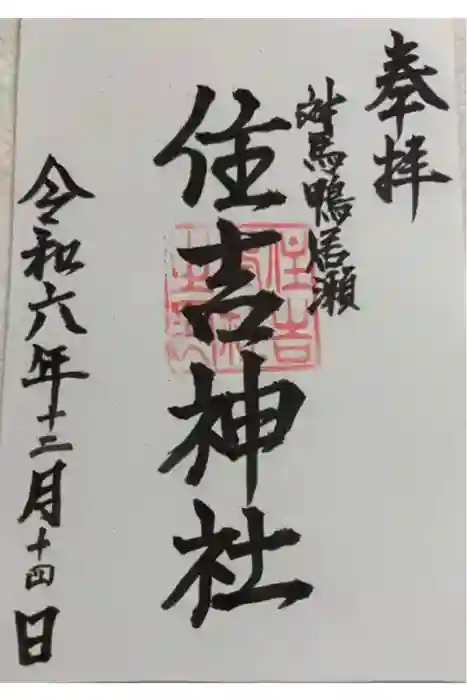 奉拝
対馬鴨居瀬
住吉神社
住吉
令和六年十二月十四日